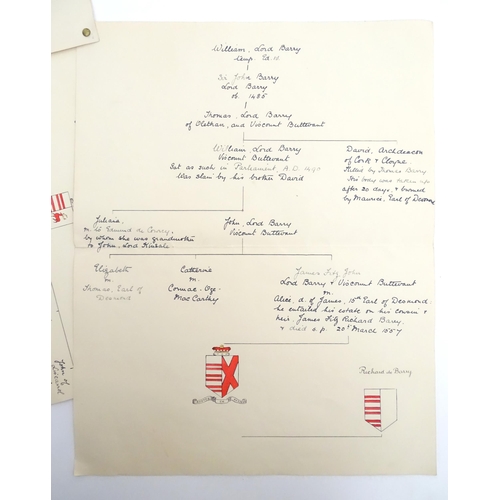 William, Lord Barry
temp. Ed. iv.
Sir John Barry
Lord Barry
ob. 1486
Thomas, Lord Barry
of Olethan, and Viscount Buttevant
William Lord Barry
Viscount Buttevant
Sat as such in Parliament, A.D. 1490
Was slain by his brother David
David, Archdeacon
of Cork & Cloyne.
Killed by Thomas Barry
His body was taken up
after 20 days, & burned
by Maurice, Earl of Desmond
Juliana
m. Sir Edmund de Courcy
by whom she was grandmother
to John, Lord Kinsale
John, Lord Barry
Viscount Buttevant
Elizabeth
m
Thomas, Earl of
Desmond
Catherine
m
Cormac-Oge-
MacCarthy
James Fitz John
Lord Barry & Viscount Buttevant
m.
Alice, d. of James, 15th Earl of Desmond
he entailed his estate on his cousin &
heir, James Fitz Richard Barry,
& died s.p. 20th March 1557
Richard de Barry
John of